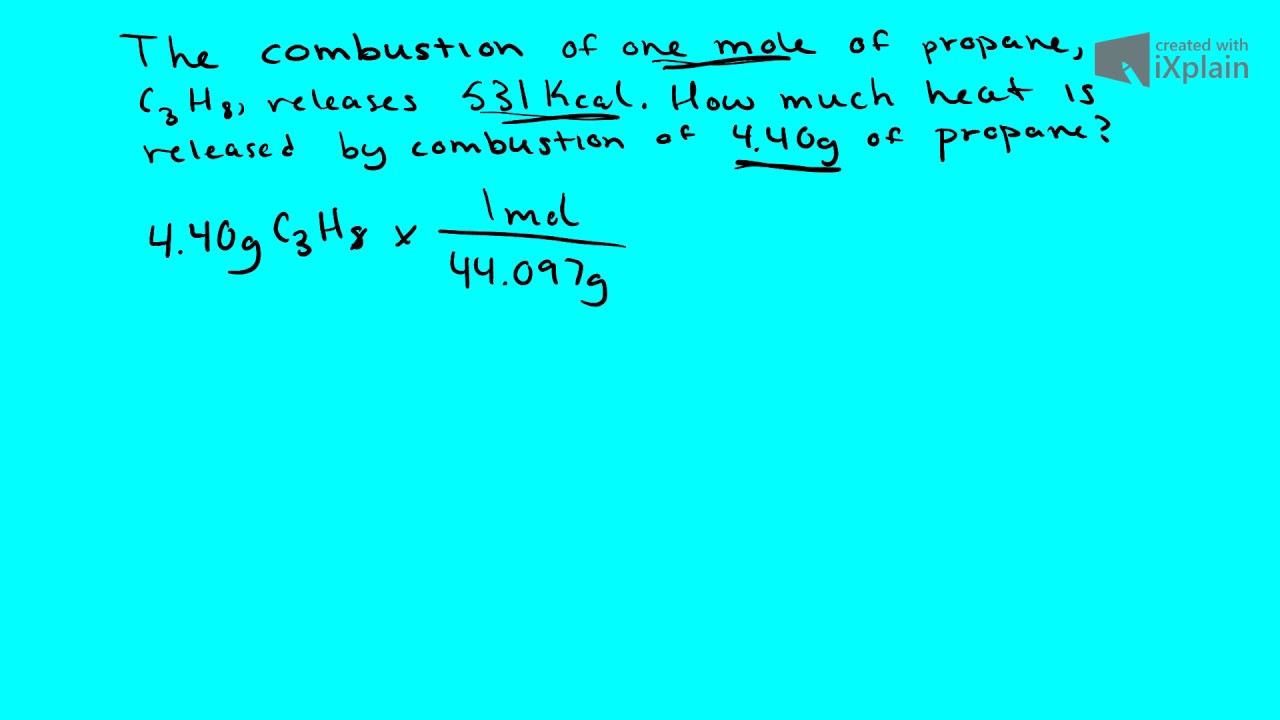 The combustion of one mole of propane,
C₃H₈, releases 531 Kcal. How much heat is
released by combustion of 4.40g of propane?
created with
iXplain
4.40g C₃H₈ x 1 mol
44.097g